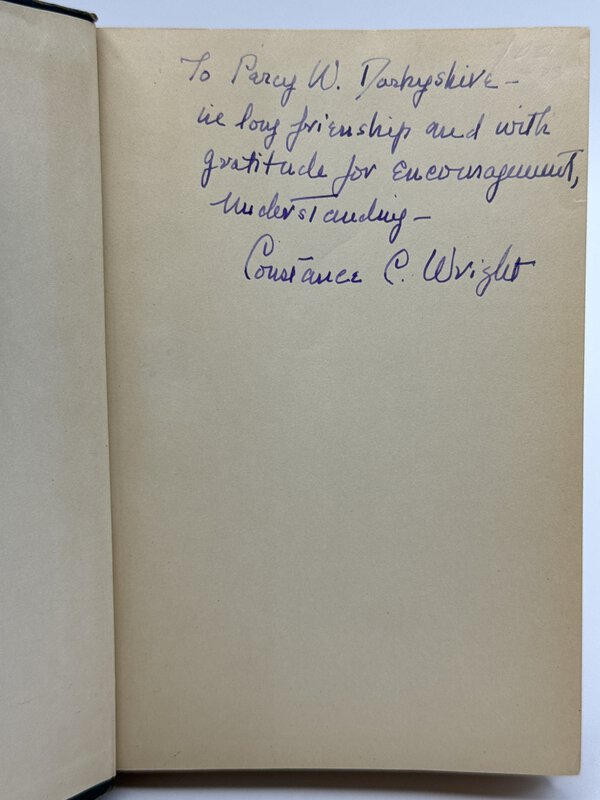 To Percy W. Darbyshire –
in long frienship and with
gratitude for encouragement,
understanding –
Constance C. Wright